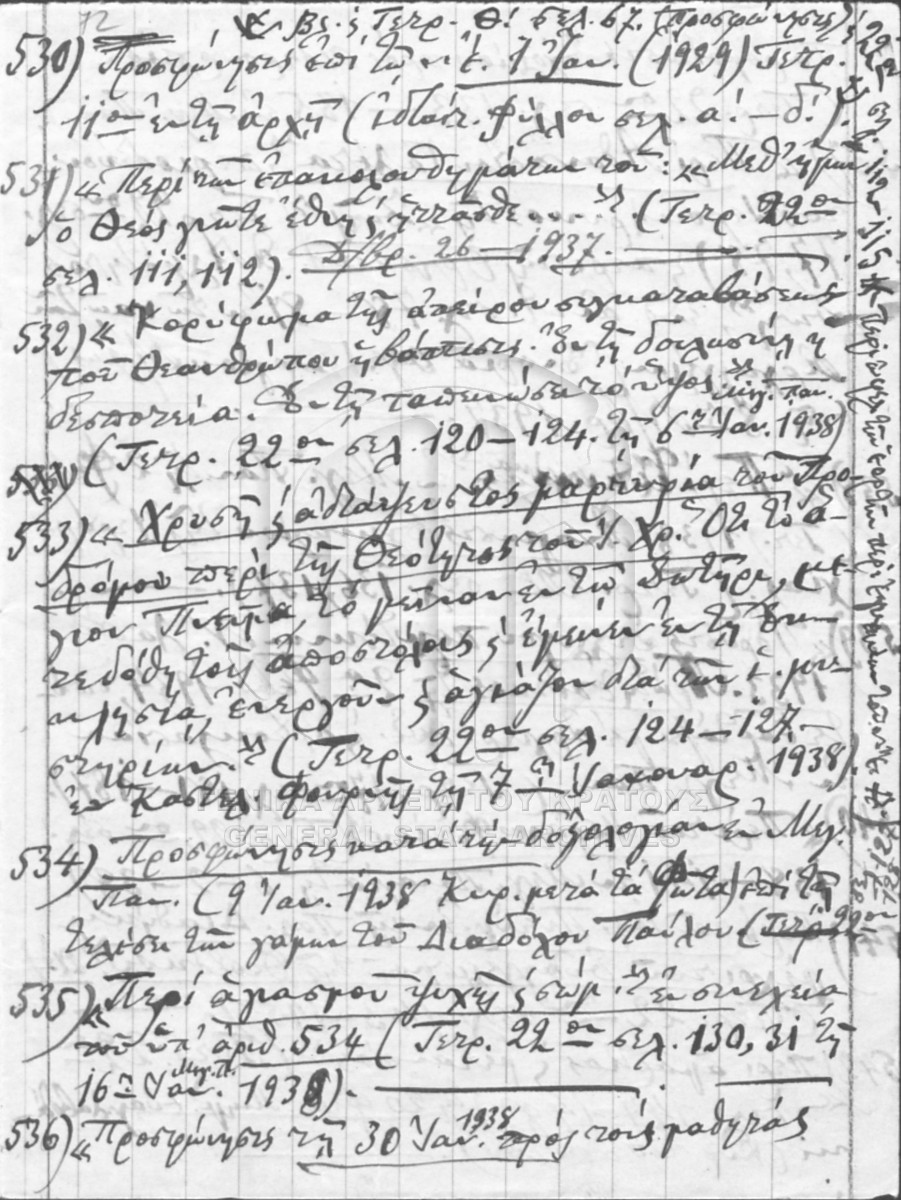 12
Βλ. ἐ Τετρ. Θ! σελ. 67. (Προσφώνησις)
530) Προσφώνησις ἐπὶ τῷ ν. ἔ. 1 Ἰαν. (1929) Τετρ.
11ον ἐν τῇ ἀρχῇ (ἰδιαίτ. φύλλον σελ. α! – δ!).
531) « Περὶ τῶν ἐπακολουθημάτων τοῦ: « Μεθ' ἡμῶν
ὁ Θεός γνῶτε ἔθνη ϗ ἡττᾶσθε .... » (Τετρ. 22ον
σελ. 111, 112). Δ/βρ. 26 – 1937.
532) « Κορύφωμα τῆς ἀπείρου συγκαταβάσεως
τοῦ Θεανθρώπου ἡ βάπτισις. Ἐν τῇ δουλωσύνῃ ἡ
δεσποτεία. Ἐν τῇ ταπεινώσει τὸ ὕψος » Μεγ. Παν.
(Τετρ. 22ον σελ. 120 – 124. τῇ 6ῃ Ἰαν. 1938)
533) « Χρυσῆ ϗ ἀδιάψευστος μαρτυρία τοῦ Προ-
δρόμου περὶ τῆς Θεότητος τοῦ Ἰ. Χρ. Ὅτι τὸ ἅ-
γιον Πνεῦμα, τὸ μεῖναν ἐν τῷ Σωτῆρι, με-
τεδόθη τοῖς ἀποστόλοις ϗ ἔμεινεν ἐν τῇ Ἐκ-
κλησίᾳ, ἐνεργοῦν ϗ ἁγιάζον διὰ τῶν ἱ. μυ-
στηρίων. » (Τετρ. 22ον σελ. 124 – 127.
ἐν Καστελ. Φουρνῆς τῇ 7ῃ Ἰανουαρ. 1938).
534) Προσφώνησις κατὰ τὴν δοξολογίαν ἐν Μεγ.
Παν. (9 Ἰαν. 1938 Κυρ. μετὰ τὰ Φῶτα) ἐπὶ τῇ
τελέσει τῶν γάμων τοῦ Διαδόχου Παύλου (Τετρ. 22ον
535) « Περὶ ἁγιασμοῦ ψυχῆς ϗ σώμ. » ἐν συνεχείᾳ
τοῦ ὑπ' ἀριθ. 534 (Τετρ. 22ον σελ. 130, 31 τῇ
16ῃ Ἰαν. Μεγ. Π. 1938).
536) « Προσφώνησις τῇ 30 Ἰαν. 1938 πρὸς τοὺς μαθητάς
ΓΕΝΙΚΑ ΑΡΧΕΙΑ ΤΟΥ ΚΡΑΤΟΥΣ
GENERAL STATE ARCHIVES